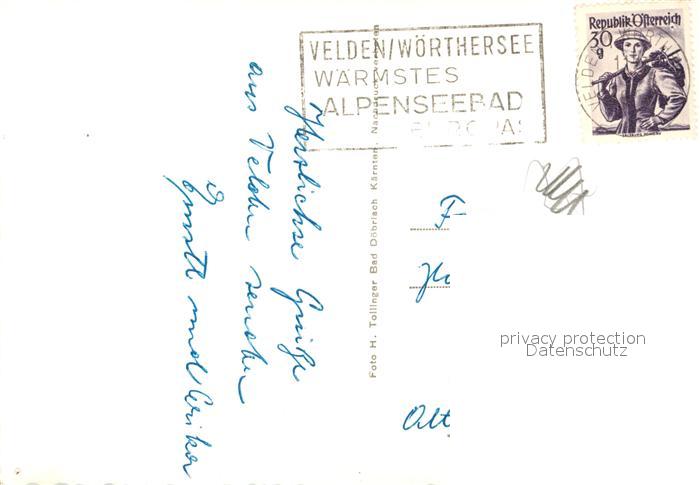 VELDEN/WÖRTHERSEE
WÄRMSTES
ALPENSEEBAD
EUROPAS
Republik Österreich
30
g
VELDEN
Herzlichste Grüße
aus Velden senden
Gustl und Erika
Foto H. Tollinger Bad Döbriach Kärnten. Nachdruck verboten
Alt
privacy protection
Datenschutz